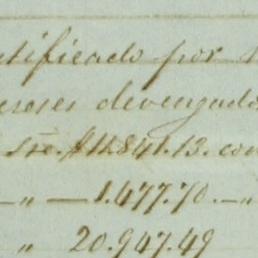 tificado por
ereses devengados
$11.841.13. con
„ — 1.477.70. — „
„ 20.947.49